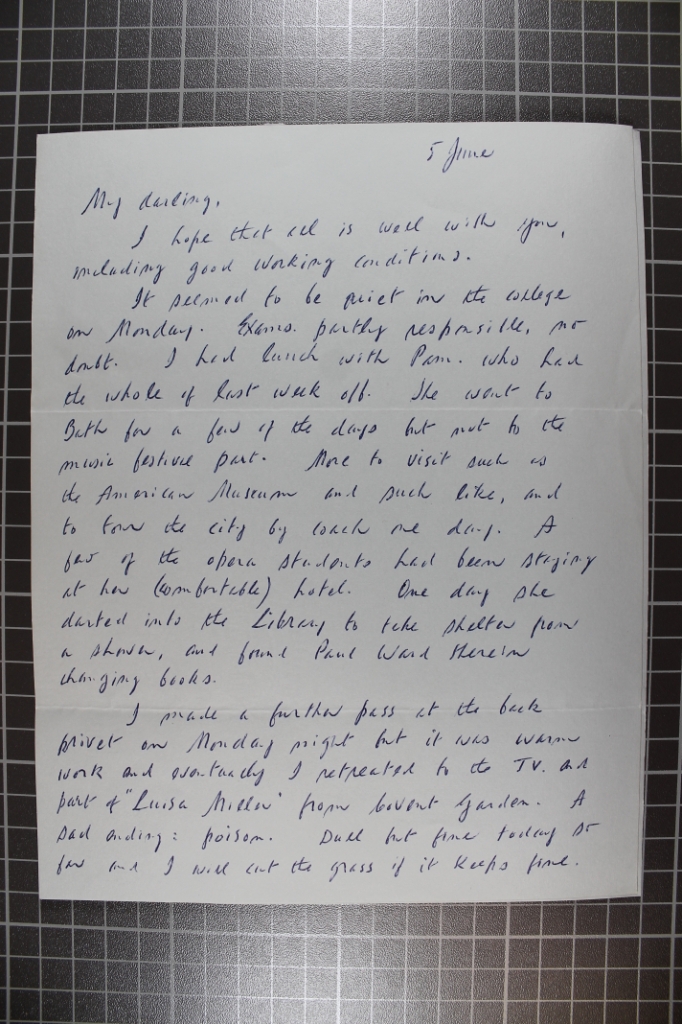 5 June
My darling,
I hope that all is well with you,
including good working conditions.
It seemed to be quiet in the college
on Monday. Exams. partly responsible, no
doubt. I had lunch with Pam. who had
the whole of last week off. She went to
Bath for a few of the days but not to the
music festival part. More to visit such as
the American Museum and such like, and
to tour the city by coach one day. A
few of the opera students had been staying
at her (comfortable) hotel. One day she
darted into the Library to take shelter from
a shower, and found Paul Ward therein
changing books.
I made a further pass at the back
privet on Monday night but it was warm
work and eventually I retreated to the TV. and
part of "Luisa Miller" from Covent Garden. A
sad ending: poison. Dull but fine today so
far and I will cut the grass if it keeps fine.